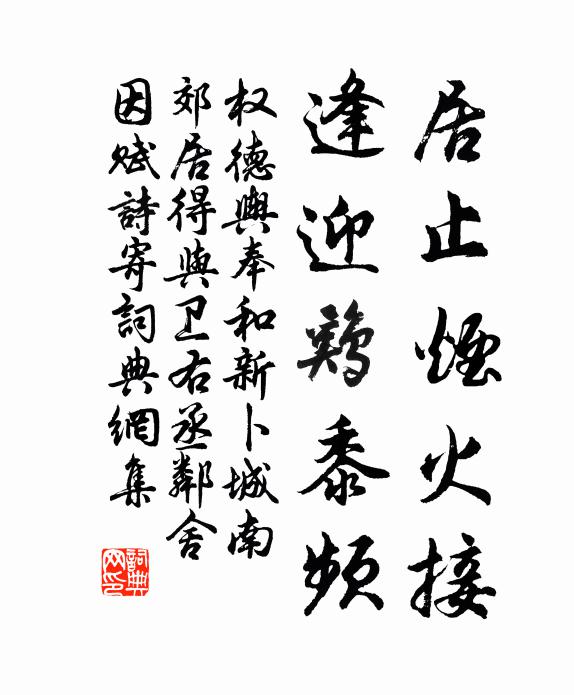 居止煙火接
逢迎鷄黍頻
权德輿奉和新卜城南
郊居得與卫右丞鄰舍
因赋詩寄詞典網集
詞典网印